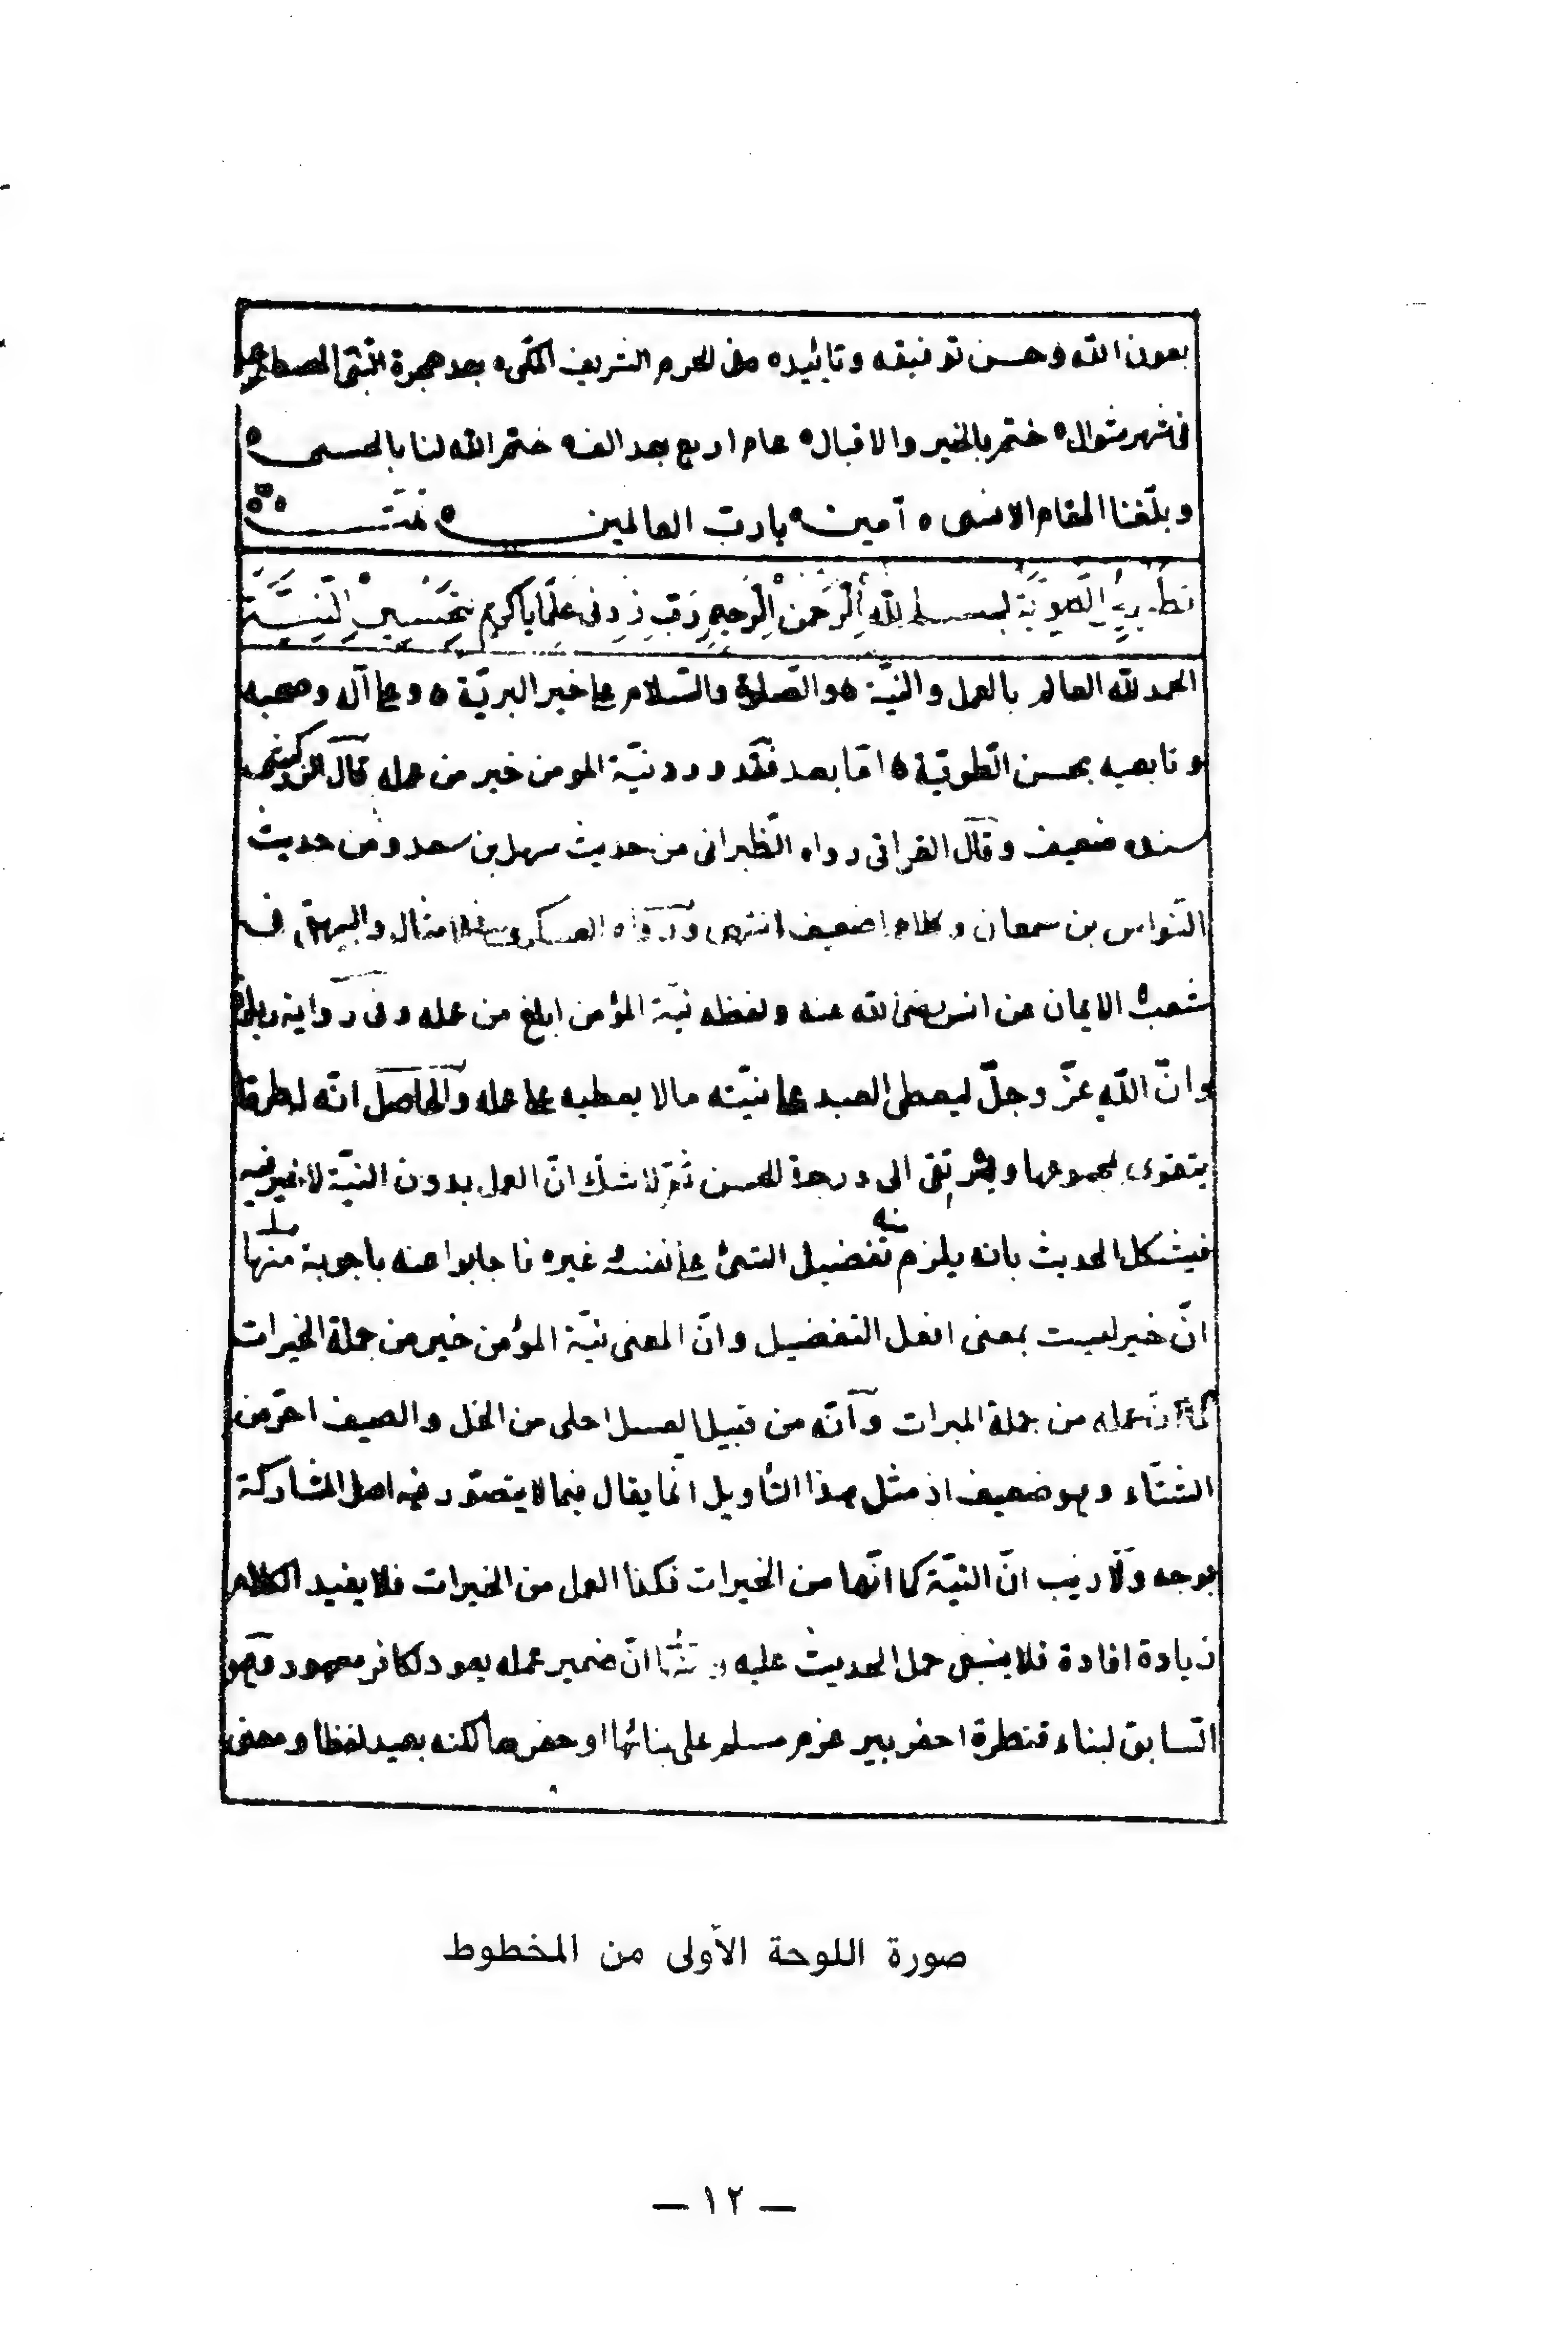 بعون الله وحسن توفيقه وتائيده فى الحرم الشريف المكى بعد هجرة النبى المصطفى
فى شهر شوال ختم بالخير والاقبال عام اربع بعد الف ختم الله لنا بالحسنى
وبلّغنا المقام الاسنى آمين يا ربّ العالمين تمّت
تطهير الطوية بتحسين النيّة بسم الله الرّحمن الرّحيم ربّ زدنى علمًا يا كريم
الحمد لله العالم بالعمل والنيّة والصّلوة والسّلام على خير البريّة وعلى آله وصحبه
وتابعيه بحسن الطّويّة امّا بعد فقد ورد نيّة المومن خير من عمله قال الزركشى
سنده ضعيف وقال العراقى رواه الطّبرانى من حديث سهل بن سعد ومن حديث
النّواس بن سمعان وكلاهما ضعيف انتهى ورواه العسكرى فى الامثال والبيهقى فى
شعب الايمان عن انس رضى الله عنه ولفظه نيّة المؤمن ابلغ من عمله وفى رواية زيادة
وانّ الله عزّ وجلّ ليعطى العبد على نيّته مالا يعطيه على عمله والحاصل انّه له طرق
يتقوى بمجموعها ويرتقى الى درجة الحسن ثمّ لا شكّ انّ العمل بدون النيّة لا خير فيه
فيشكل الحديث بانه يلزم منه تفضيل الشئ على نفسه غيره فاجابوا عنه باجوبة منها
انّ خير ليست بمعنى افعل التفضيل وانّ المعنى نيّة المؤمن خير من جملة الخيرات
كما انّ عمله من جملة المبرات وانّه من قبيل العسل احلى من الخل والصيف احرّ من
الشتاء وهو ضعيف اذ مثل هذا التأويل انما يقال فيما لا يتصوّر فيه اصل المشاركة
بوجه ولا ريب انّ النيّة كما انّها من الخيرات فكذا العمل من الخيرات فلا يفيد الكلام
زيادة افادة فلا ينبغى حمل الحديث عليه و انّ ضمير عمله يعود لكافر معهود وهو
السّابق لبناء قنطرة احفر بير عزم مسلم على بنائها او حفرها لكنه بعيد لفظا ومعنى
صورة اللوحة الأولى من المخطوط
— ١٢ —